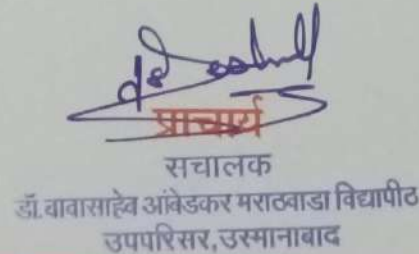 प्राचार्य
सचालक
डॉ.बाबासाहेब आंबेडकर मराठवाडा विद्यापीठ
उपपरिसर,उस्मानाबाद